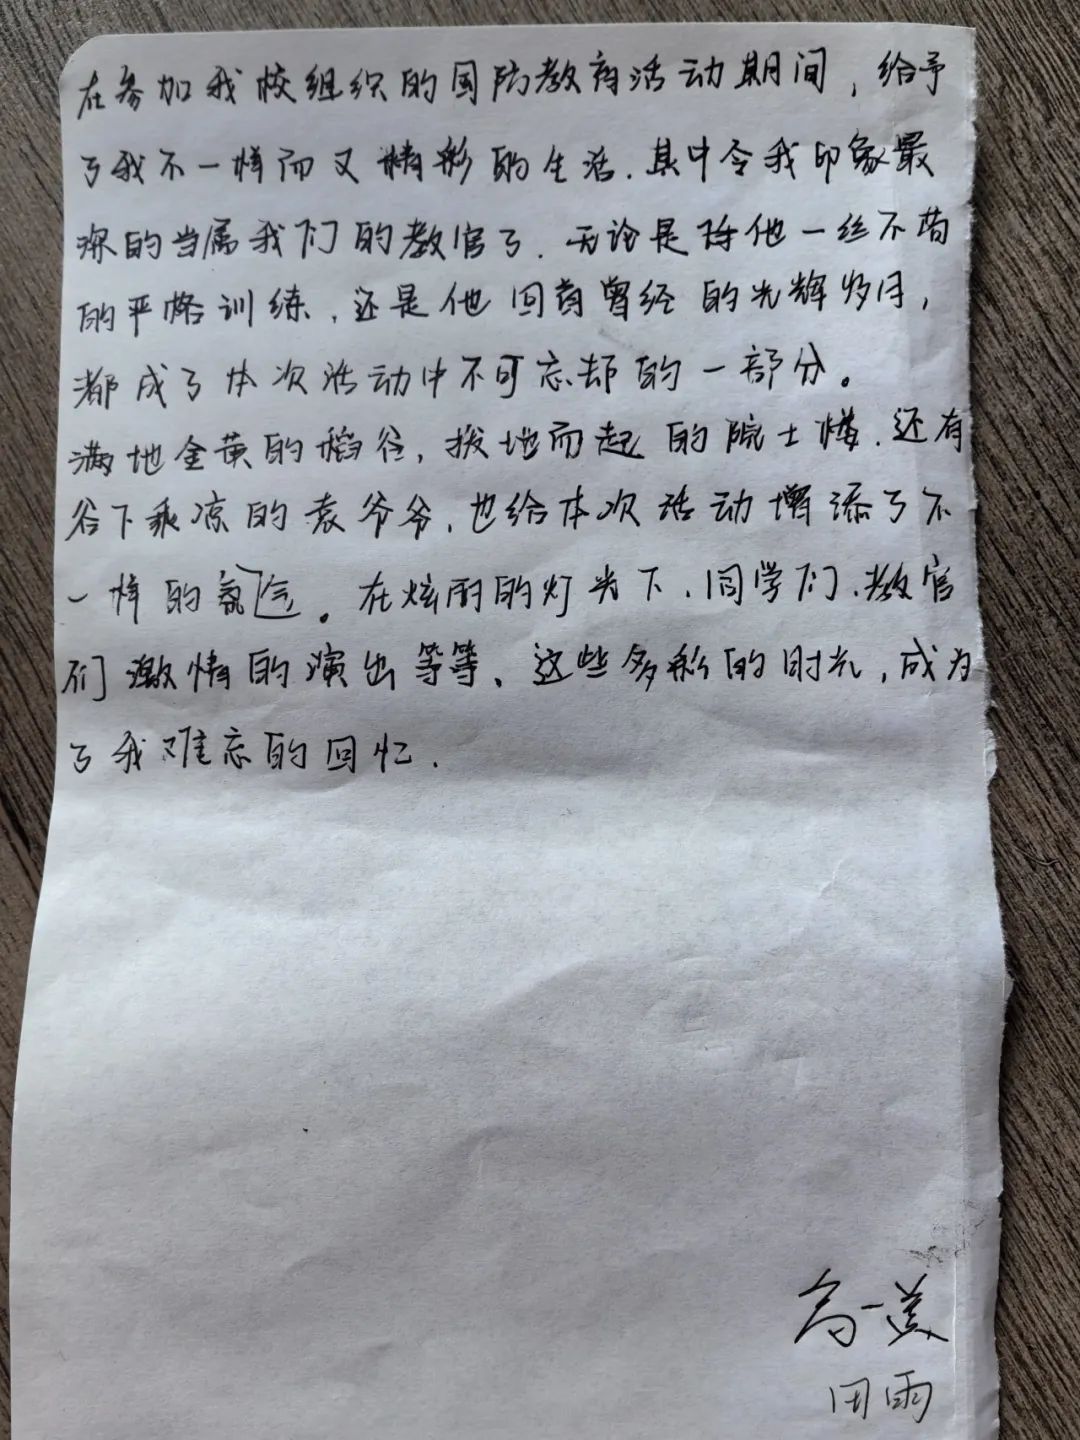 在参加我校组织的国防教育活动期间，给予
了我不一样而又精彩的生活．其中令我印象最
深的当属我们的教官了．无论是陪他一丝不苟
的严格训练，还是他回首曾经的光辉岁月，
都成了本次活动中不可忘却的一部分。
满地金黄的稻谷，拔地而起的院士楼．还有
谷下乘凉的袁爷爷，也给本次活动增添了不
一样的氛气。在炫丽的灯光下、同学们、教官
们激情的演出等等、这些多彩的时光，成为
了我难忘的回忆．
高一美
田雨